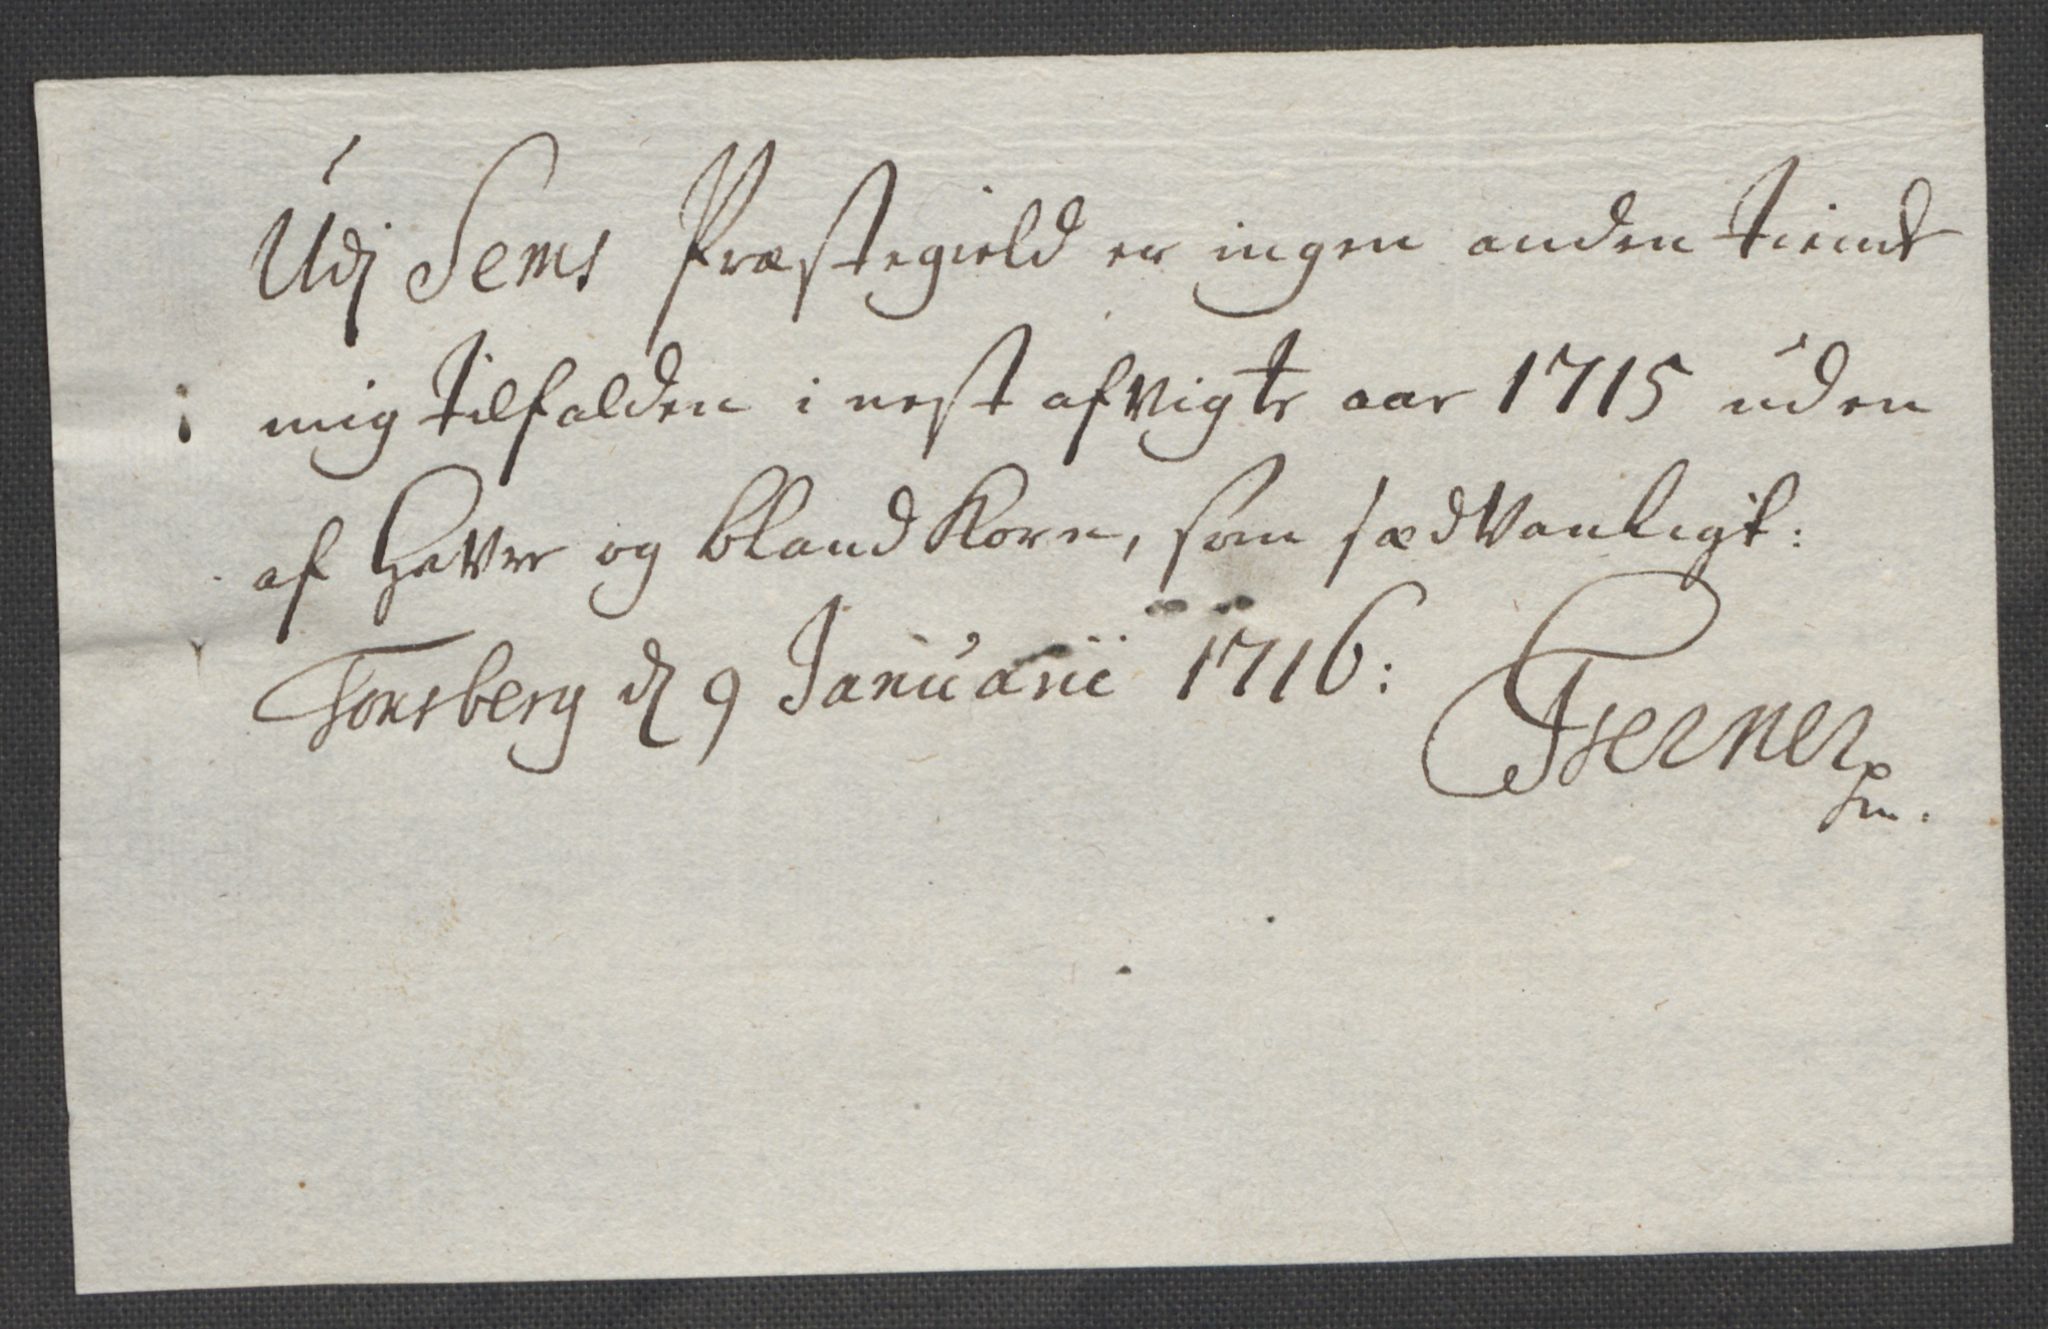 Udj Sems Præstegield er ingen anden tiende
mig tilfalden i nest afvigte aar 1715 uden
af Havre og bland Korn, som sædvanligt:
Tonsberg d 9 Januarii 1716: